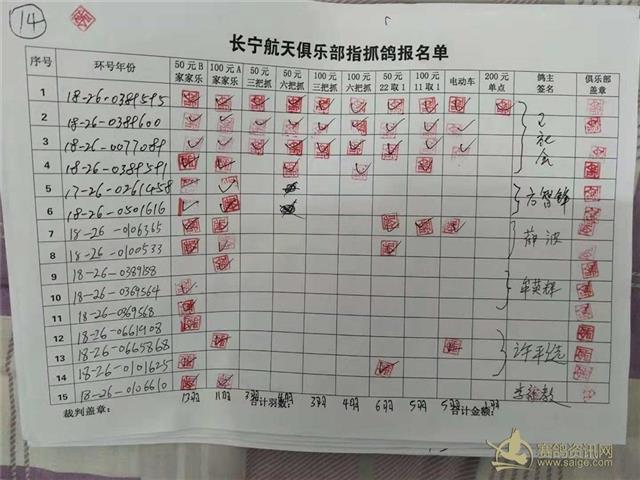 14
长宁航天俱乐部指抓鸽报名单
序号 环号年份 50元B家家乐 100元A家家乐 50元三把抓 50元六把抓 100元三把抓 100元六把抓 50元22取1 100元11取1 电动车 200元单点 鸽主签名 俱乐部盖章
1 18-26-0389595
2 18-26-0389600
3 18-26-0077089
4 18-26-0389591
5 17-26-0261458 方智锋
6 18-26-0501616
7 18-26-0106365 薛波
8 18-26-0100533
9 18-26-0389158
10 18-26-0369564 牟英辉
11 18-26-0369568
12 18-26-0661908
13 18-26-0665868
14 18-26-0101625
15 18-26-0106610
12羽 11羽 3羽 4羽 3羽 4羽 6羽 5羽 5羽 1羽
裁判盖章： 合计羽数： 合计金额：
赛鸽资讯网
www.saige.com